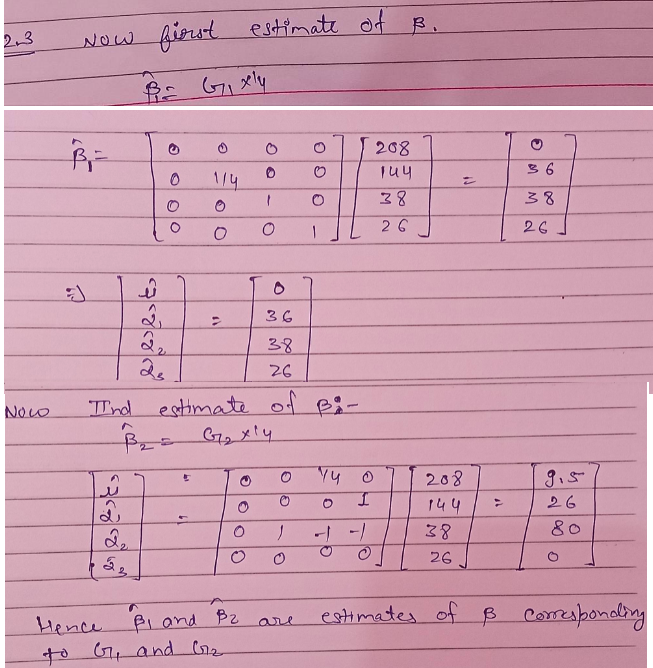 2.3 Now first estimate of β.
β̂₁ = G₁ x'y
β̂₁ = [0 0 0 0; 0 1/4 0 0; 0 0 1 0; 0 0 0 1] [208; 144; 38; 26] = [0; 36; 38; 26]
⇒ [μ̂; α̂₁; α̂₂; α̂₃] = [0; 36; 38; 26]
Now IInd estimate of β:-
β̂₂ = G₂ x'y
[μ̂; α̂₁; α̂₂; α̂₃] = [0 0 1/4 0; 0 0 0 1; 0 1 -1 -1; 0 0 0 0] [208; 144; 38; 26] = [9.5; 26; 80; 0]
Hence β̂₁ and β̂₂ are estimates of β corresponding
to G₁ and G₂